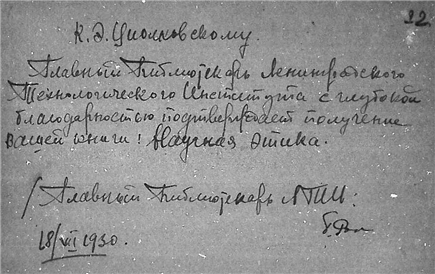 32.
К. Э. Циолковскому.
Главный Библиотекарь Ленинградского
Технологического Института с глубокой
благодарностью подтверждает получение
Вашей книги: Научная Этика.
/Главный Библиотекарь ЛТИ:
18/VII 1930.